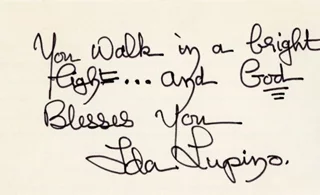 You walk in a bright
light... and God
Blesses You
Ida Lupino.